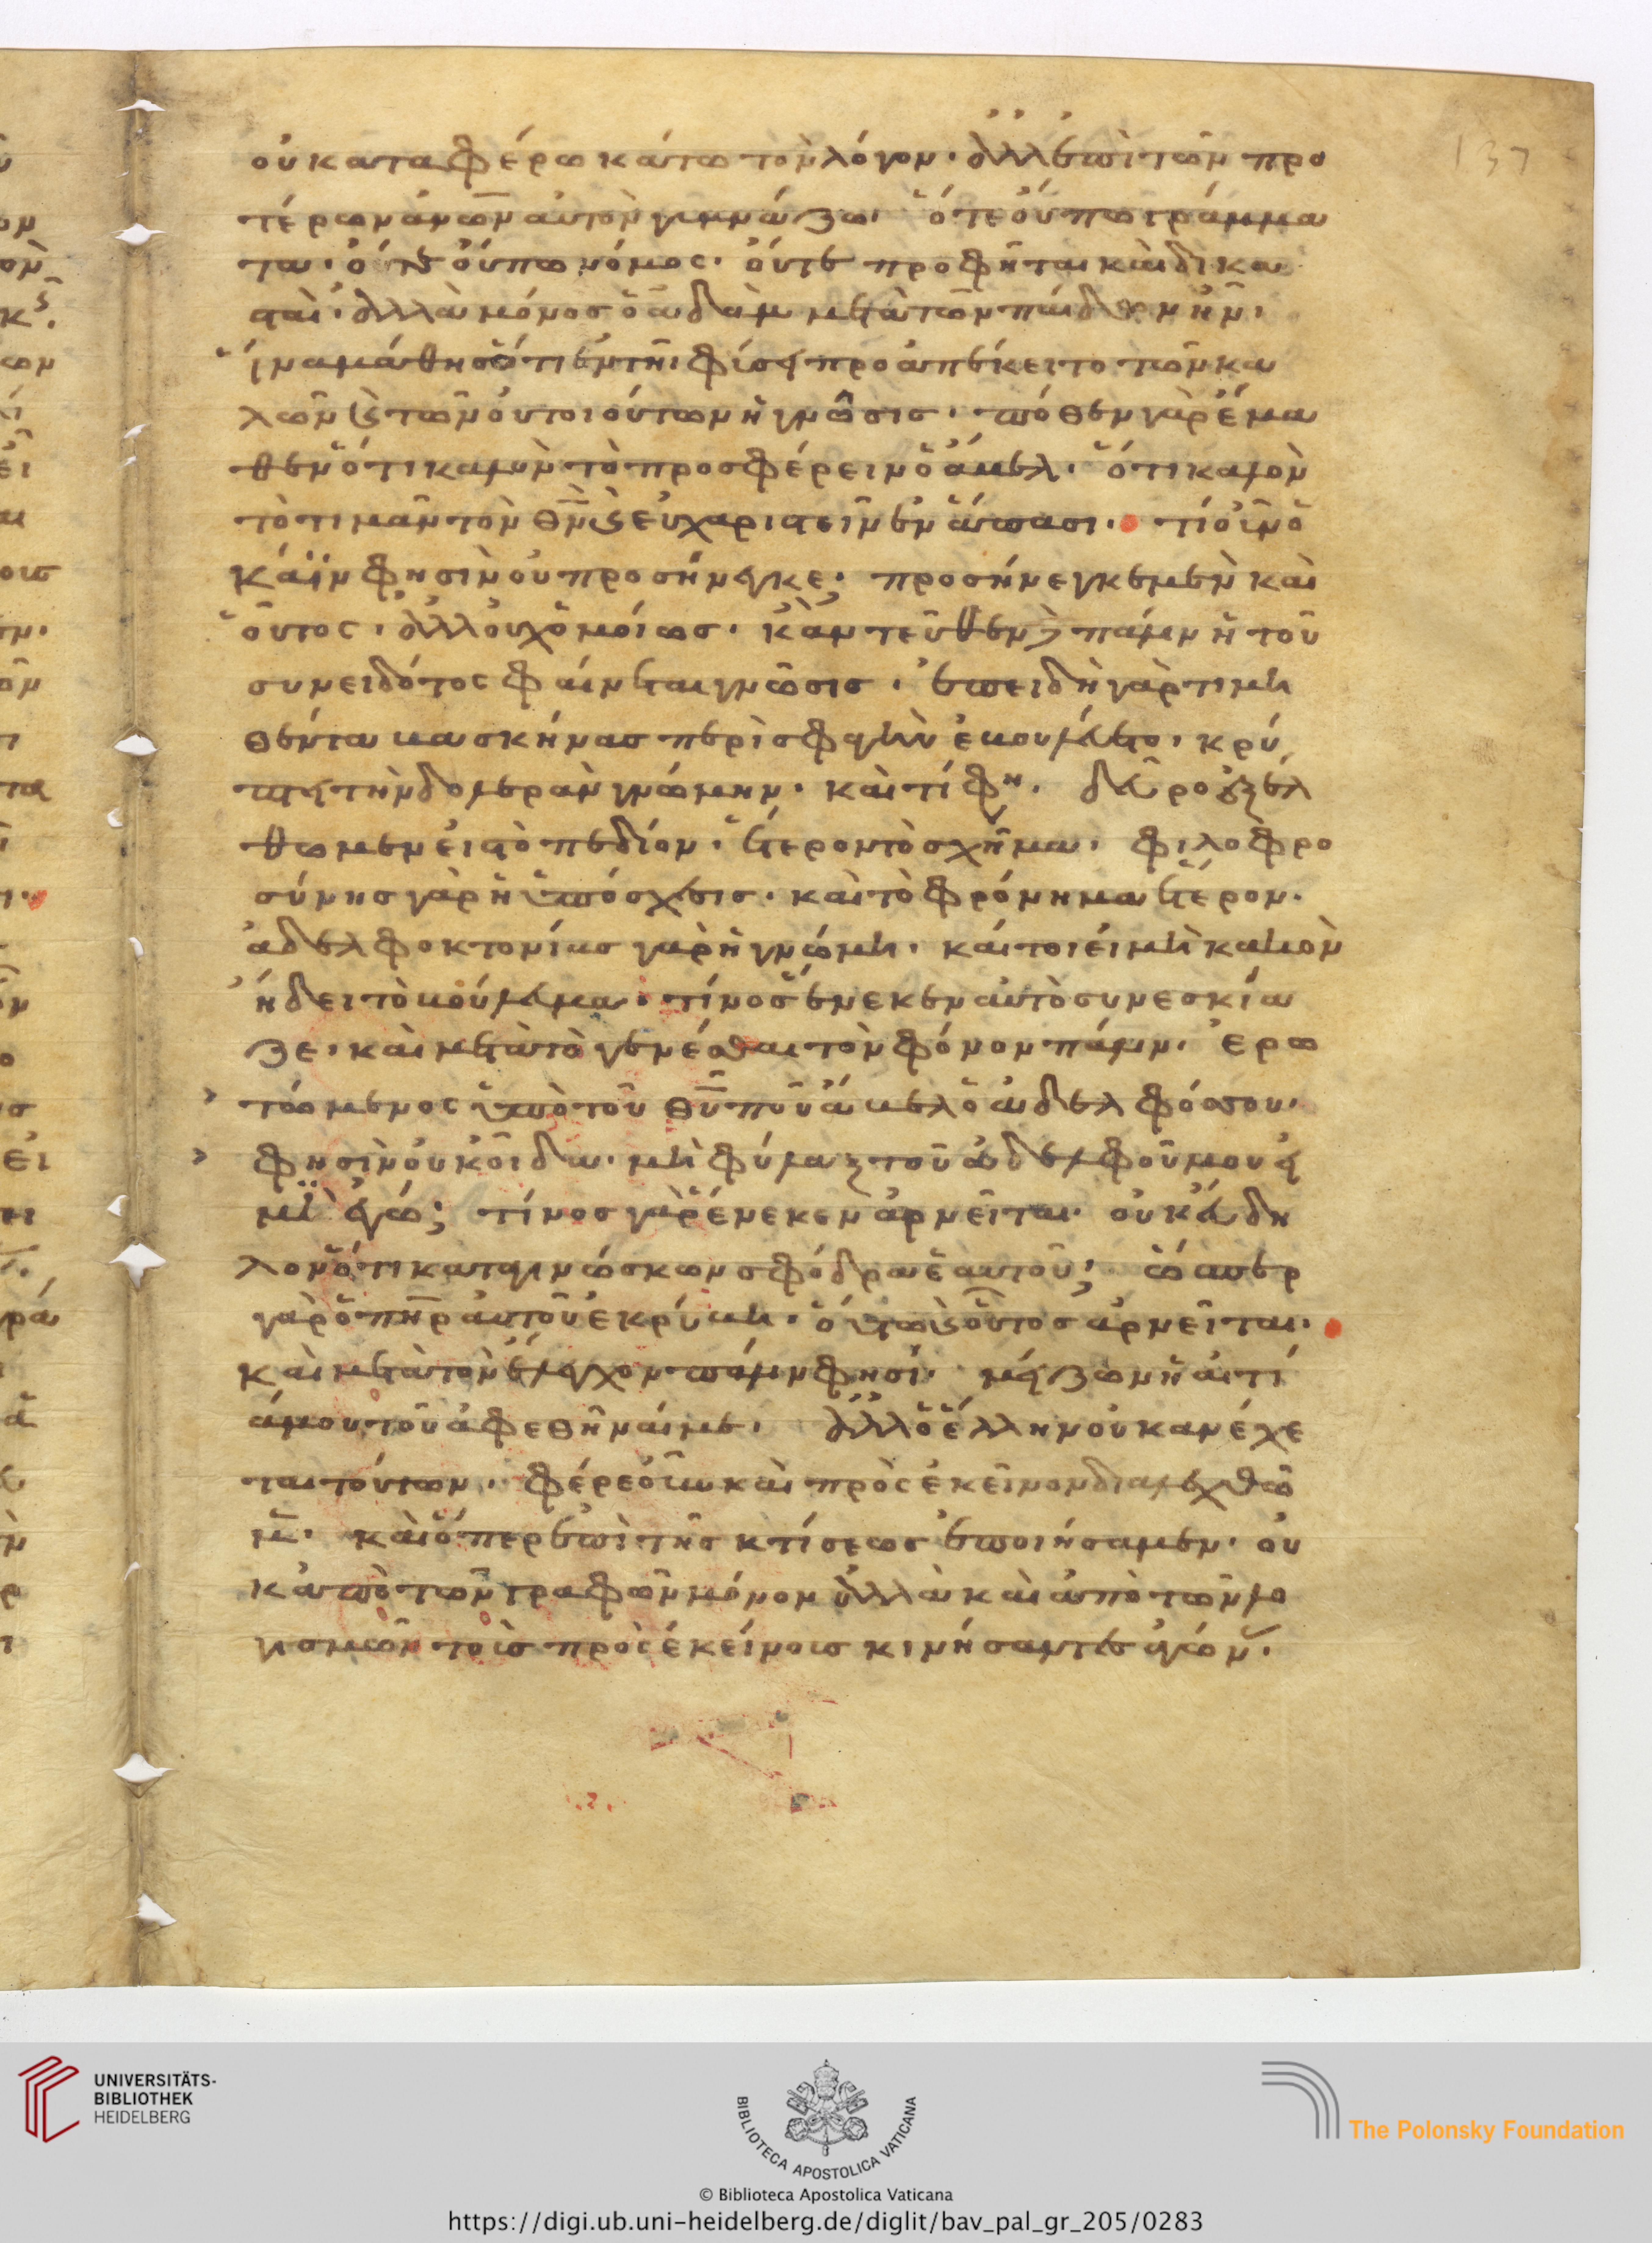 137
οὐ καταφέρω κάτω τὸν λόγον· ἀλλ' ἐπὶ τῶν προ
τέρων ἀνῶν αὐτὸν γυμνάζω· ὅτε οὔπω γράμμα
τα· οὔτε οὔπω νόμος· οὔτε προφῆται καὶ δικα
σταί· ἀλλὰ μόνος ὁ ἀδὰμ μετὰ τῶν παίδων ἦν·
ἵνα μάθης ὅτι ἐν τῆι φύσει προαπέκειτο τῶν κα
λῶν καὶ τῶν οὐ τοιούτων ἡ γνῶσις· πόθεν γὰρ ἔμα
θεν ὅτι καλὸν τὸ προσφέρειν ὁ ἄβελ· ὅτι καλὸν
τὸ τιμᾶν τὸν θν καὶ εὐχαριστεῖν ἐν ἅπασι· τί οὖν ὁ
κάϊν φησὶν οὐ προσήνεγκε; προσήνεγκε μὲν καὶ
οὗτος· ἀλλ' οὐχ ὁμοίως· κἀντεῦθεν πάλιν ἡ τοῦ
συνειδότος φαίνεται γνῶσις· ἐπειδὴ γὰρ τιμη
θέντα βασκήνας περὶ σφαγὴν ἐβουλεύετο· κρύ
πτει τὴν δολερὰν γνώμην· καὶ τί φη· δεῦρο ἐξέλ
θωμεν εἰς τὸ πεδίον· ἕτερον τὸ σχῆμα· φιλοφρο
σύνης γὰρ ἡ ὑπόσχεσις· καὶ τὸ φρόνημα ἕτερον·
ἀδελφοκτονίας γὰρ ἡ γνώμη· καίτοι εἰ μὴ κακὸν
ἤδει τὸ βούλευμα· τίνος ἕνεκεν αὐτὸ συνεσκία
ζε· καὶ μετὰ τὸ γενέσθαι τὸν φόνον πάλιν· ἐρω
τώμενος ὑπὸ τοῦ θυ ποῦ ἄβελ ὁ ἀδελφός σου·
φησὶν οὐκ οἶδα· μὴ φύλαξ τοῦ ἀδελφοῦ μου εἰ
μὶ ἐγώ; τίνος γὰρ ἕνεκεν ἀρνεῖται· οὐκ εὔδη
λον ὅτι καταγινώσκων σφόδρα ἑαυτοῦ; ὥσπερ
γὰρ ὁ πηρ αὐτοῦ ἐκρύβη· οὕτω καὶ οὗτος ἀρνεῖται·
καὶ μετὰ τὸν ἔλεγχον πάλιν φησί· μείζων ἡ αἰτί
α μου τοῦ ἀφεθῆναί με· ἀλλ' ὁ ἕλλην οὐκ ἀνέχε
ται τούτων· φέρε οὖν καὶ πρὸς ἐκεῖνον διαλεχθῶ
μεν· καὶ ὅπερ ἐπὶ τῆς κτίσεως ἐποιήσαμεν· οὐ
κ ἀπὸ τῶν γραφῶν μόνον ἀλλὰ καὶ ἀπὸ τῶν λο
γισμῶν τοῖς πρὸς ἐκείνοις κινήσαντες ἀγών·
UNIVERSITÄTS-
BIBLIOTHEK
HEIDELBERG
BIBLIOTECA APOSTOLICA VATICANA
The Polonsky Foundation
© Biblioteca Apostolica Vaticana
https://digi.ub.uni-heidelberg.de/diglit/bav_pal_gr_205/0283